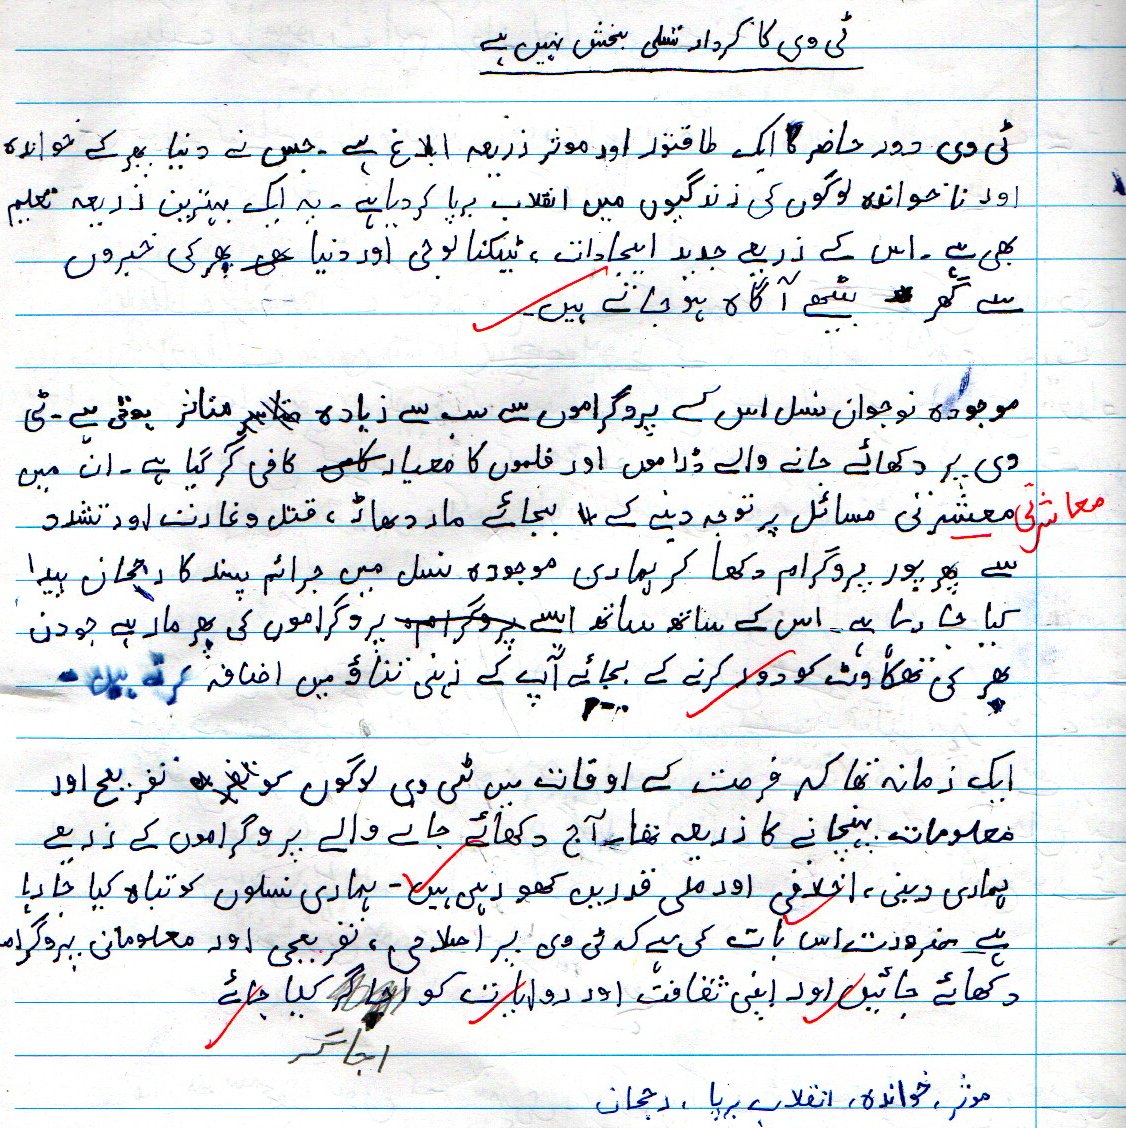 ٹی وی کا کردار تسلی بخش نہیں ہے
ٹی وی دور حاضر کا ایک طاقتور اور موثر ذریعہ ابلاغ ہے ۔ جس نے دنیا بھر کے خواندہ
اور ناخواندہ لوگوں کی زندگیوں میں انقلاب برپا کردیا ہے ۔ یہ ایک بہترین ذریعہ تعلیم
بھی ہے ۔ اس کے ذریعے جدید ایجادات ، ٹیکنالوجی اور دنیا بھر کی خبروں
سے گھر بیٹھے آگاہ ہو جاتے ہیں ۔
موجودہ نوجوان نسل اس کے پروگراموں سے سب سے زیادہ متاثر ہوتی ہے ۔ ٹی
وی پر دکھائے جانے والے ڈراموں اور فلموں کا معیار کافی گر گیا ہے ۔ ان میں
معاشرتی معشرتی مسائل پر توجہ دینے کے بجائے مار دھاڑ ، قتل و غارت اور تشدد
سے بھرپور پروگرام دکھا کر ہماری موجودہ نسل میں جرائم پسند کا رجحان پیدا
کیا جا رہا ہے ۔ اس کے ساتھ ساتھ ایسے پروگراموں کی بھرمار ہے جو دن
بھر کی تھکاوٹ کو دور کرنے کے بجائے آپ کے ذہنی تناؤ میں اضافہ کرتے ہیں ۔
ایک زمانہ تھا کہ فرصت کے اوقات میں ٹی وی لوگوں کو تفریح اور
معلومات پہنچانے کا ذریعہ تھا ۔ آج دکھائے جانے والے پروگراموں کے ذریعے
ہماری دینی ، اخلاقی اور ملی قدریں کھو رہی ہیں ۔ ہماری نسلوں کو تباہ کیا جا رہا
ہے ضرورت اس بات کی ہے کہ ٹی وی پر اصلاحی ، تفریحی اور معلوماتی پروگرام
دکھائے جائیں اور اپنی ثقافت اور روایات کو اجاگر کیا جائے
اجاگر
موثر ، خواندہ ، انقلاب برپا ، رجحان